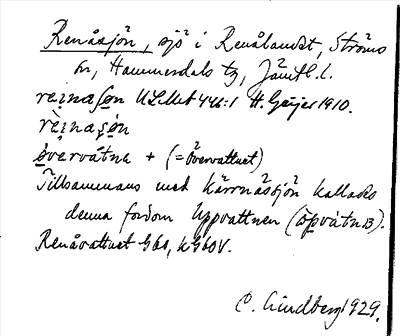 Renåsjön, sjö i Renålandet, Ströms
sn, Hammerdals tg, Jämtl. l.
reinaʃøn ULMA 446:1 H. Geijer 1910.
rèi̯naʃön
øvervátna + (= övervattnet)
Tillsammans med Kärrnässjön kallades
denna fordom Uppvattnen (òpvátnɒ).
Renåvattnet G60, k G60V.
C. Lindberg 1929.